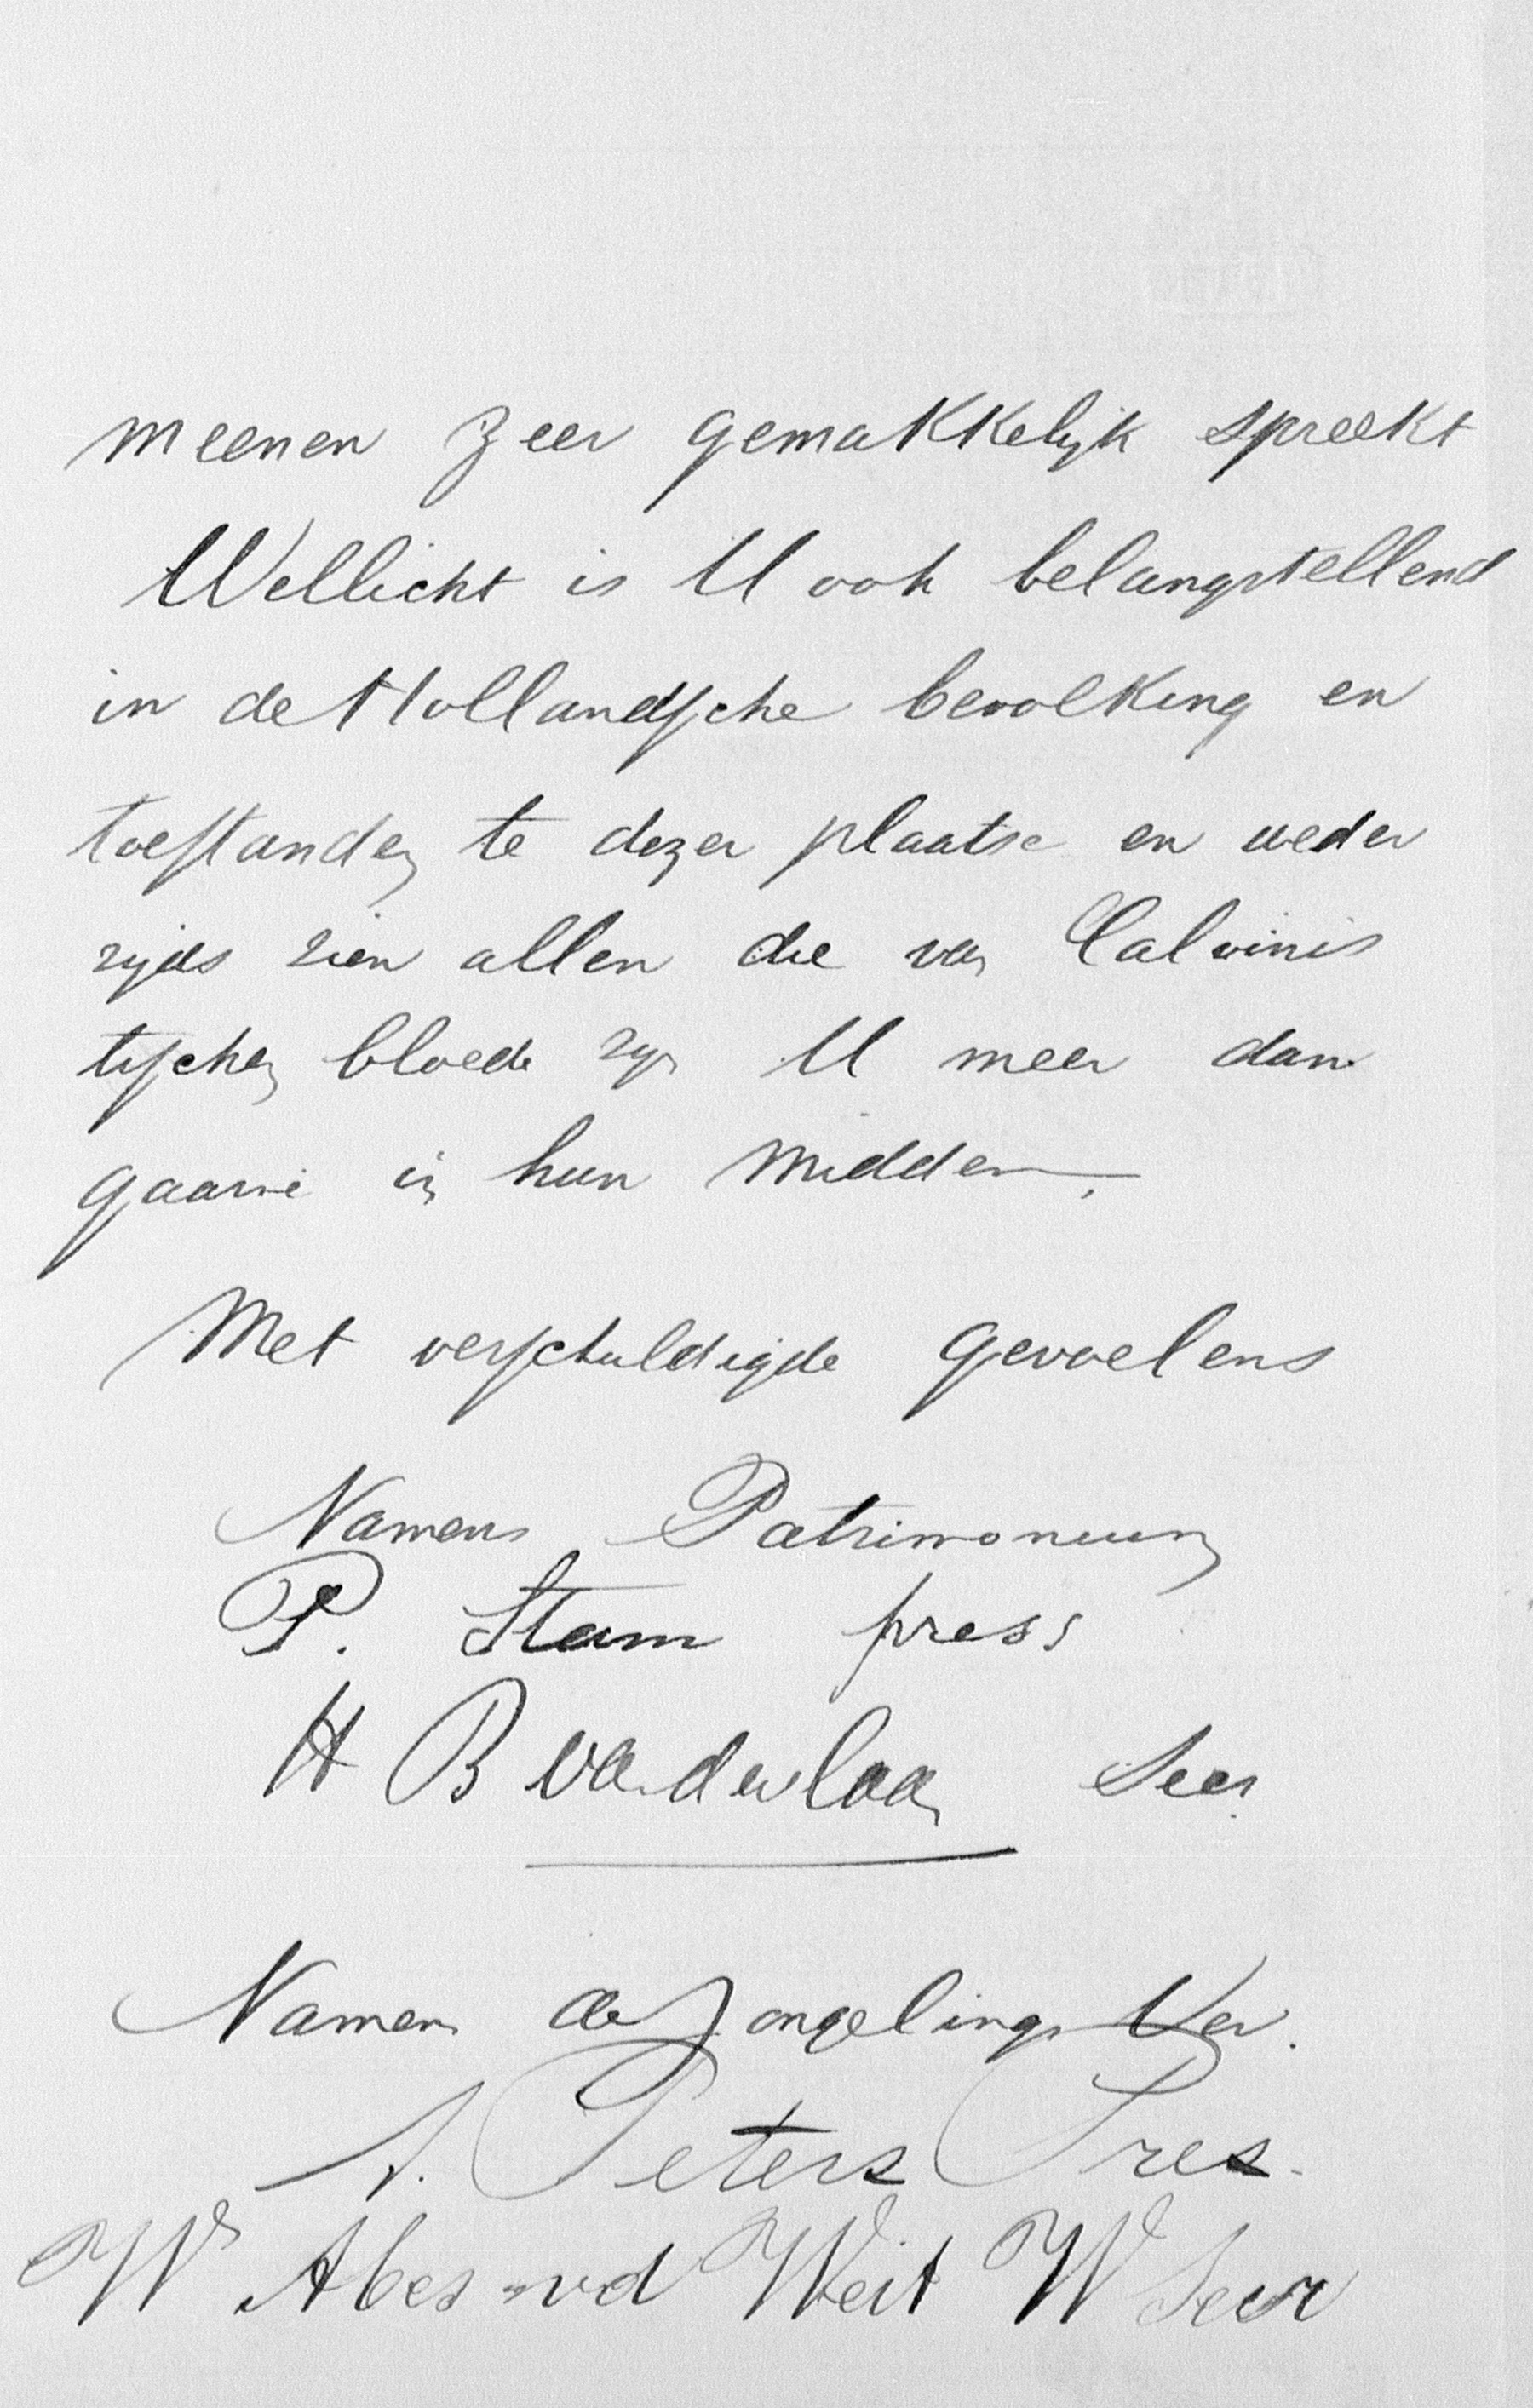 meenen zeer gemakkelijk spreekt
Wellicht is U ook belangstellend
in de Hollandsche bevolking en
toestanden te dezer plaatse en weder
zijds zien allen die van Calvinis
tischen bloede zijn U meer dan
gaarne in hun midden.
Met verschuldigde gevoelens
Namens Patrimonium
P. Stam press
H B vanderlaan Secr
Namens de Jongelings Ver.
A. Peters Pres.
W Abes vd Weit W Secr